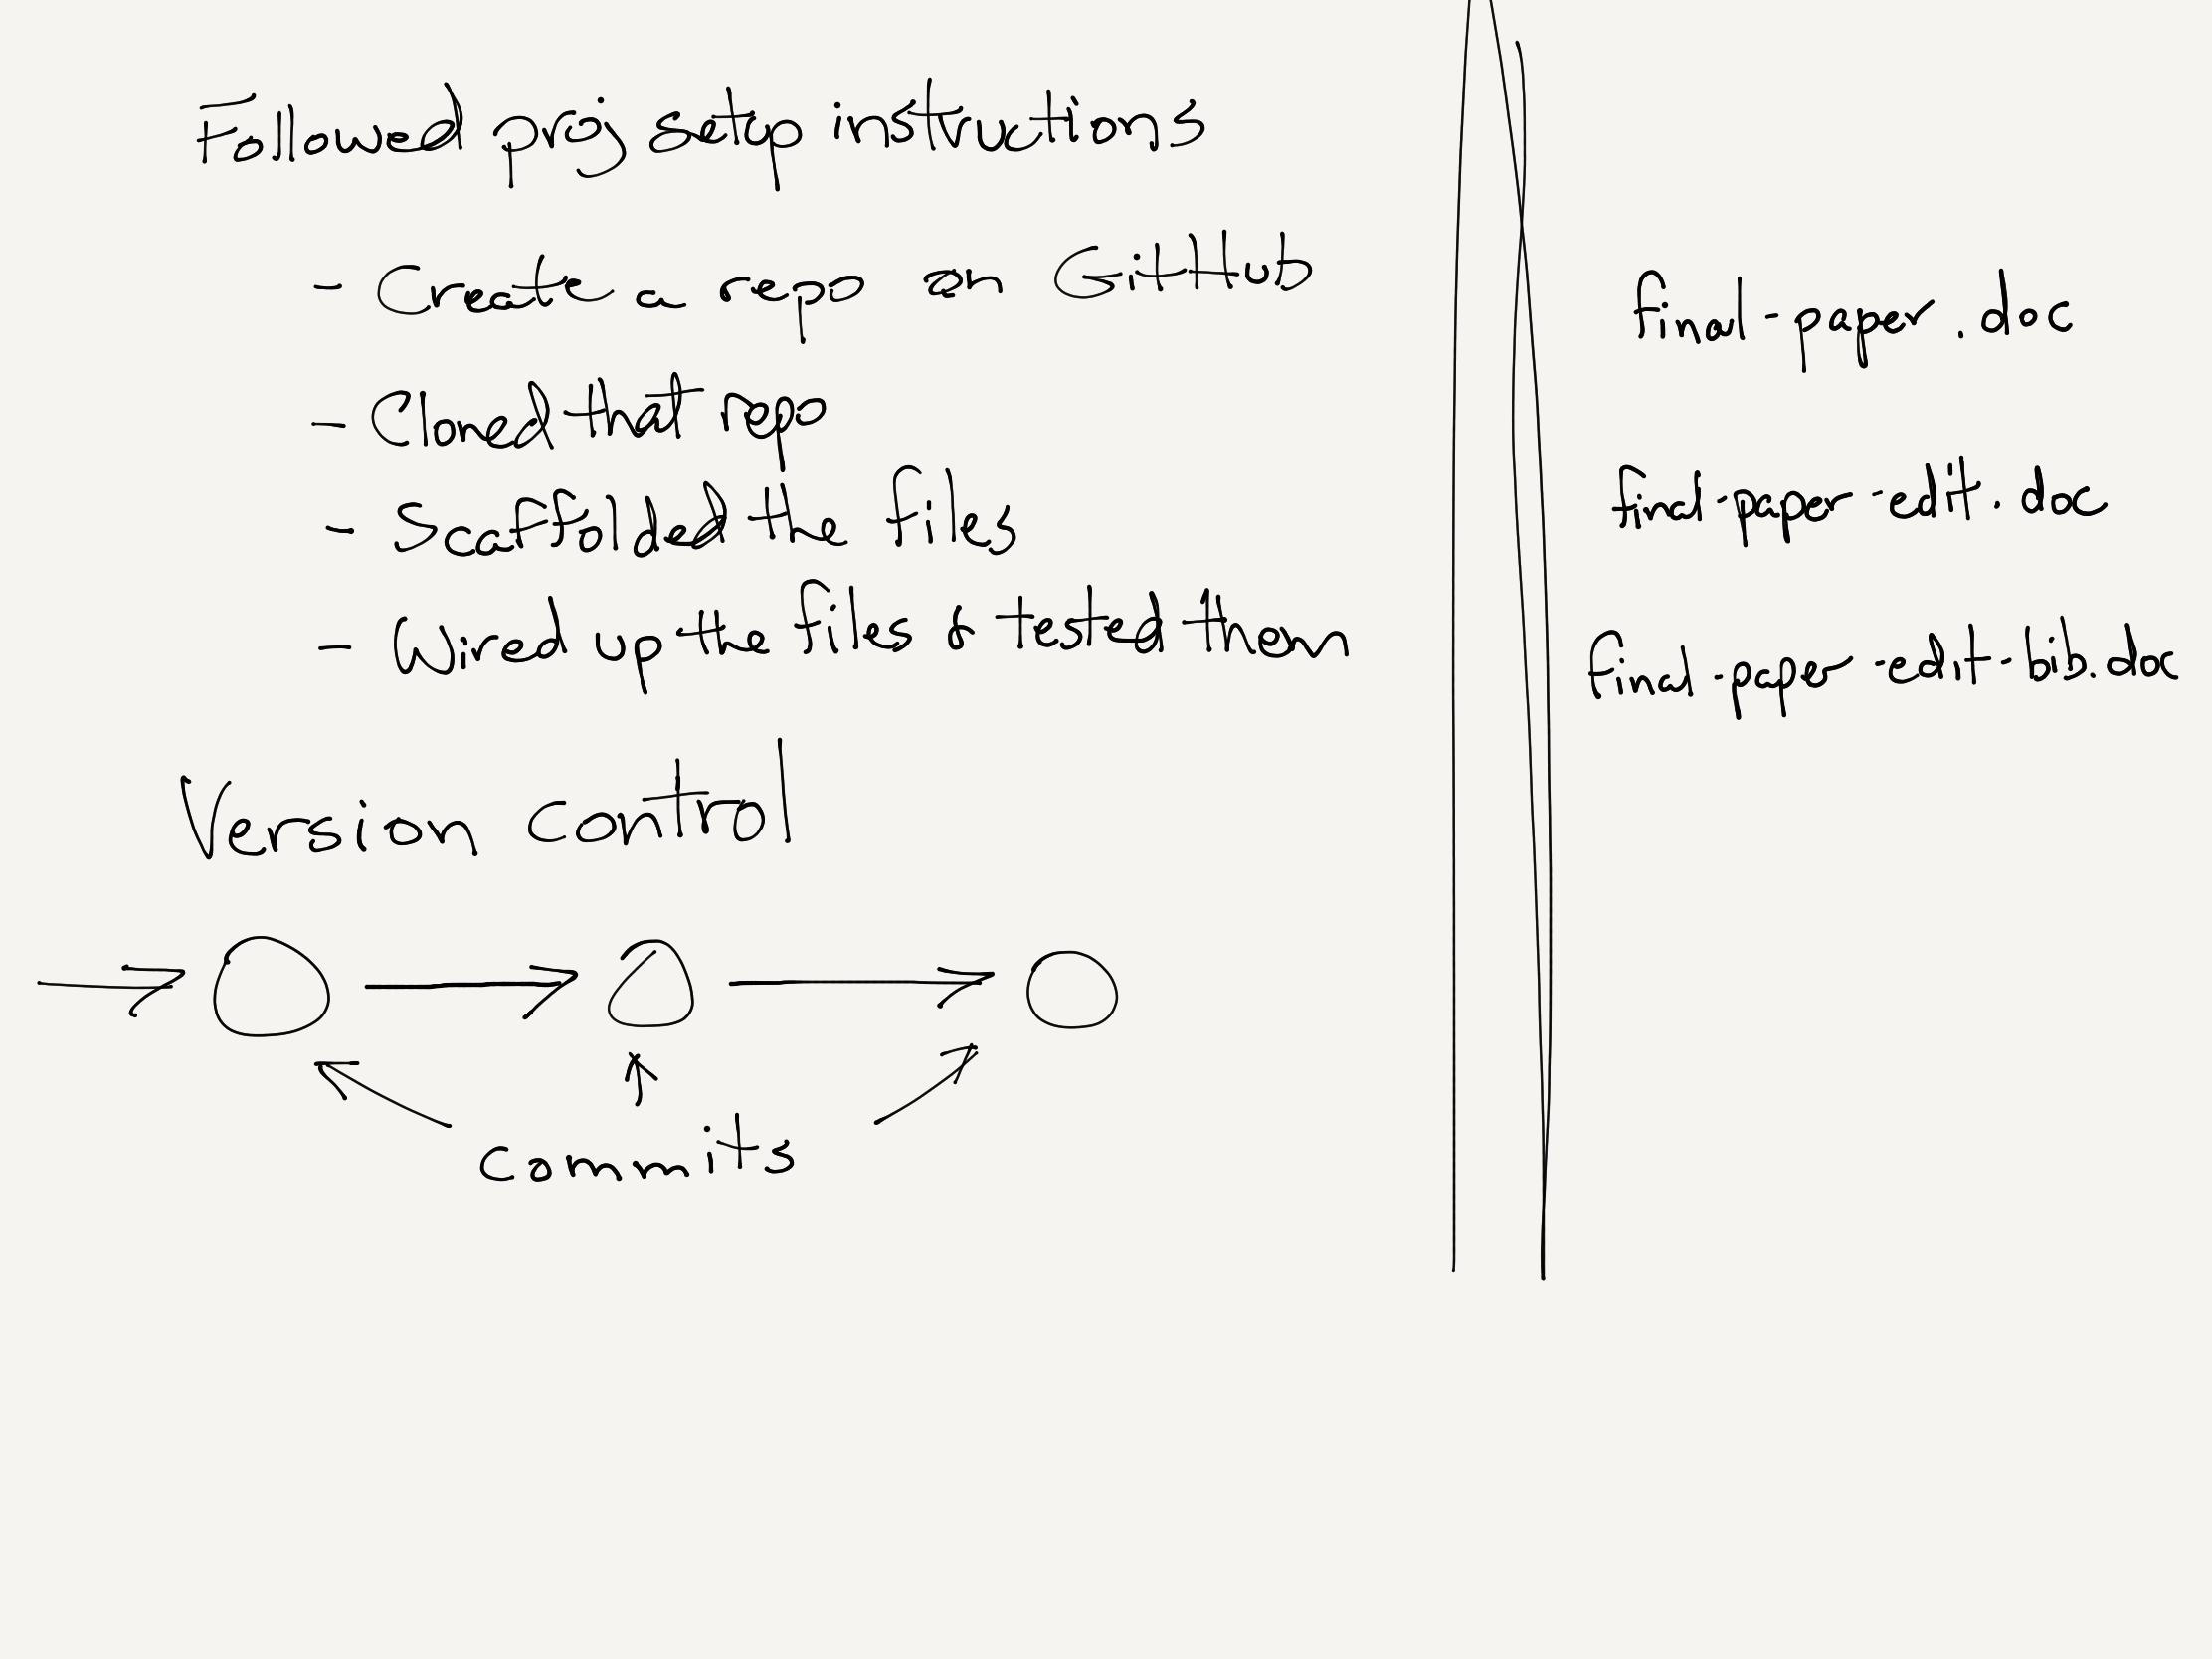 Followed proj setup instructions
- Create a repo on GitHub
- Cloned that repo
- Scaffolded the files
- Wired up the files & tested them
Version control
commits
final-paper.doc
final-paper-edit.doc
final-paper-edit-bib.doc